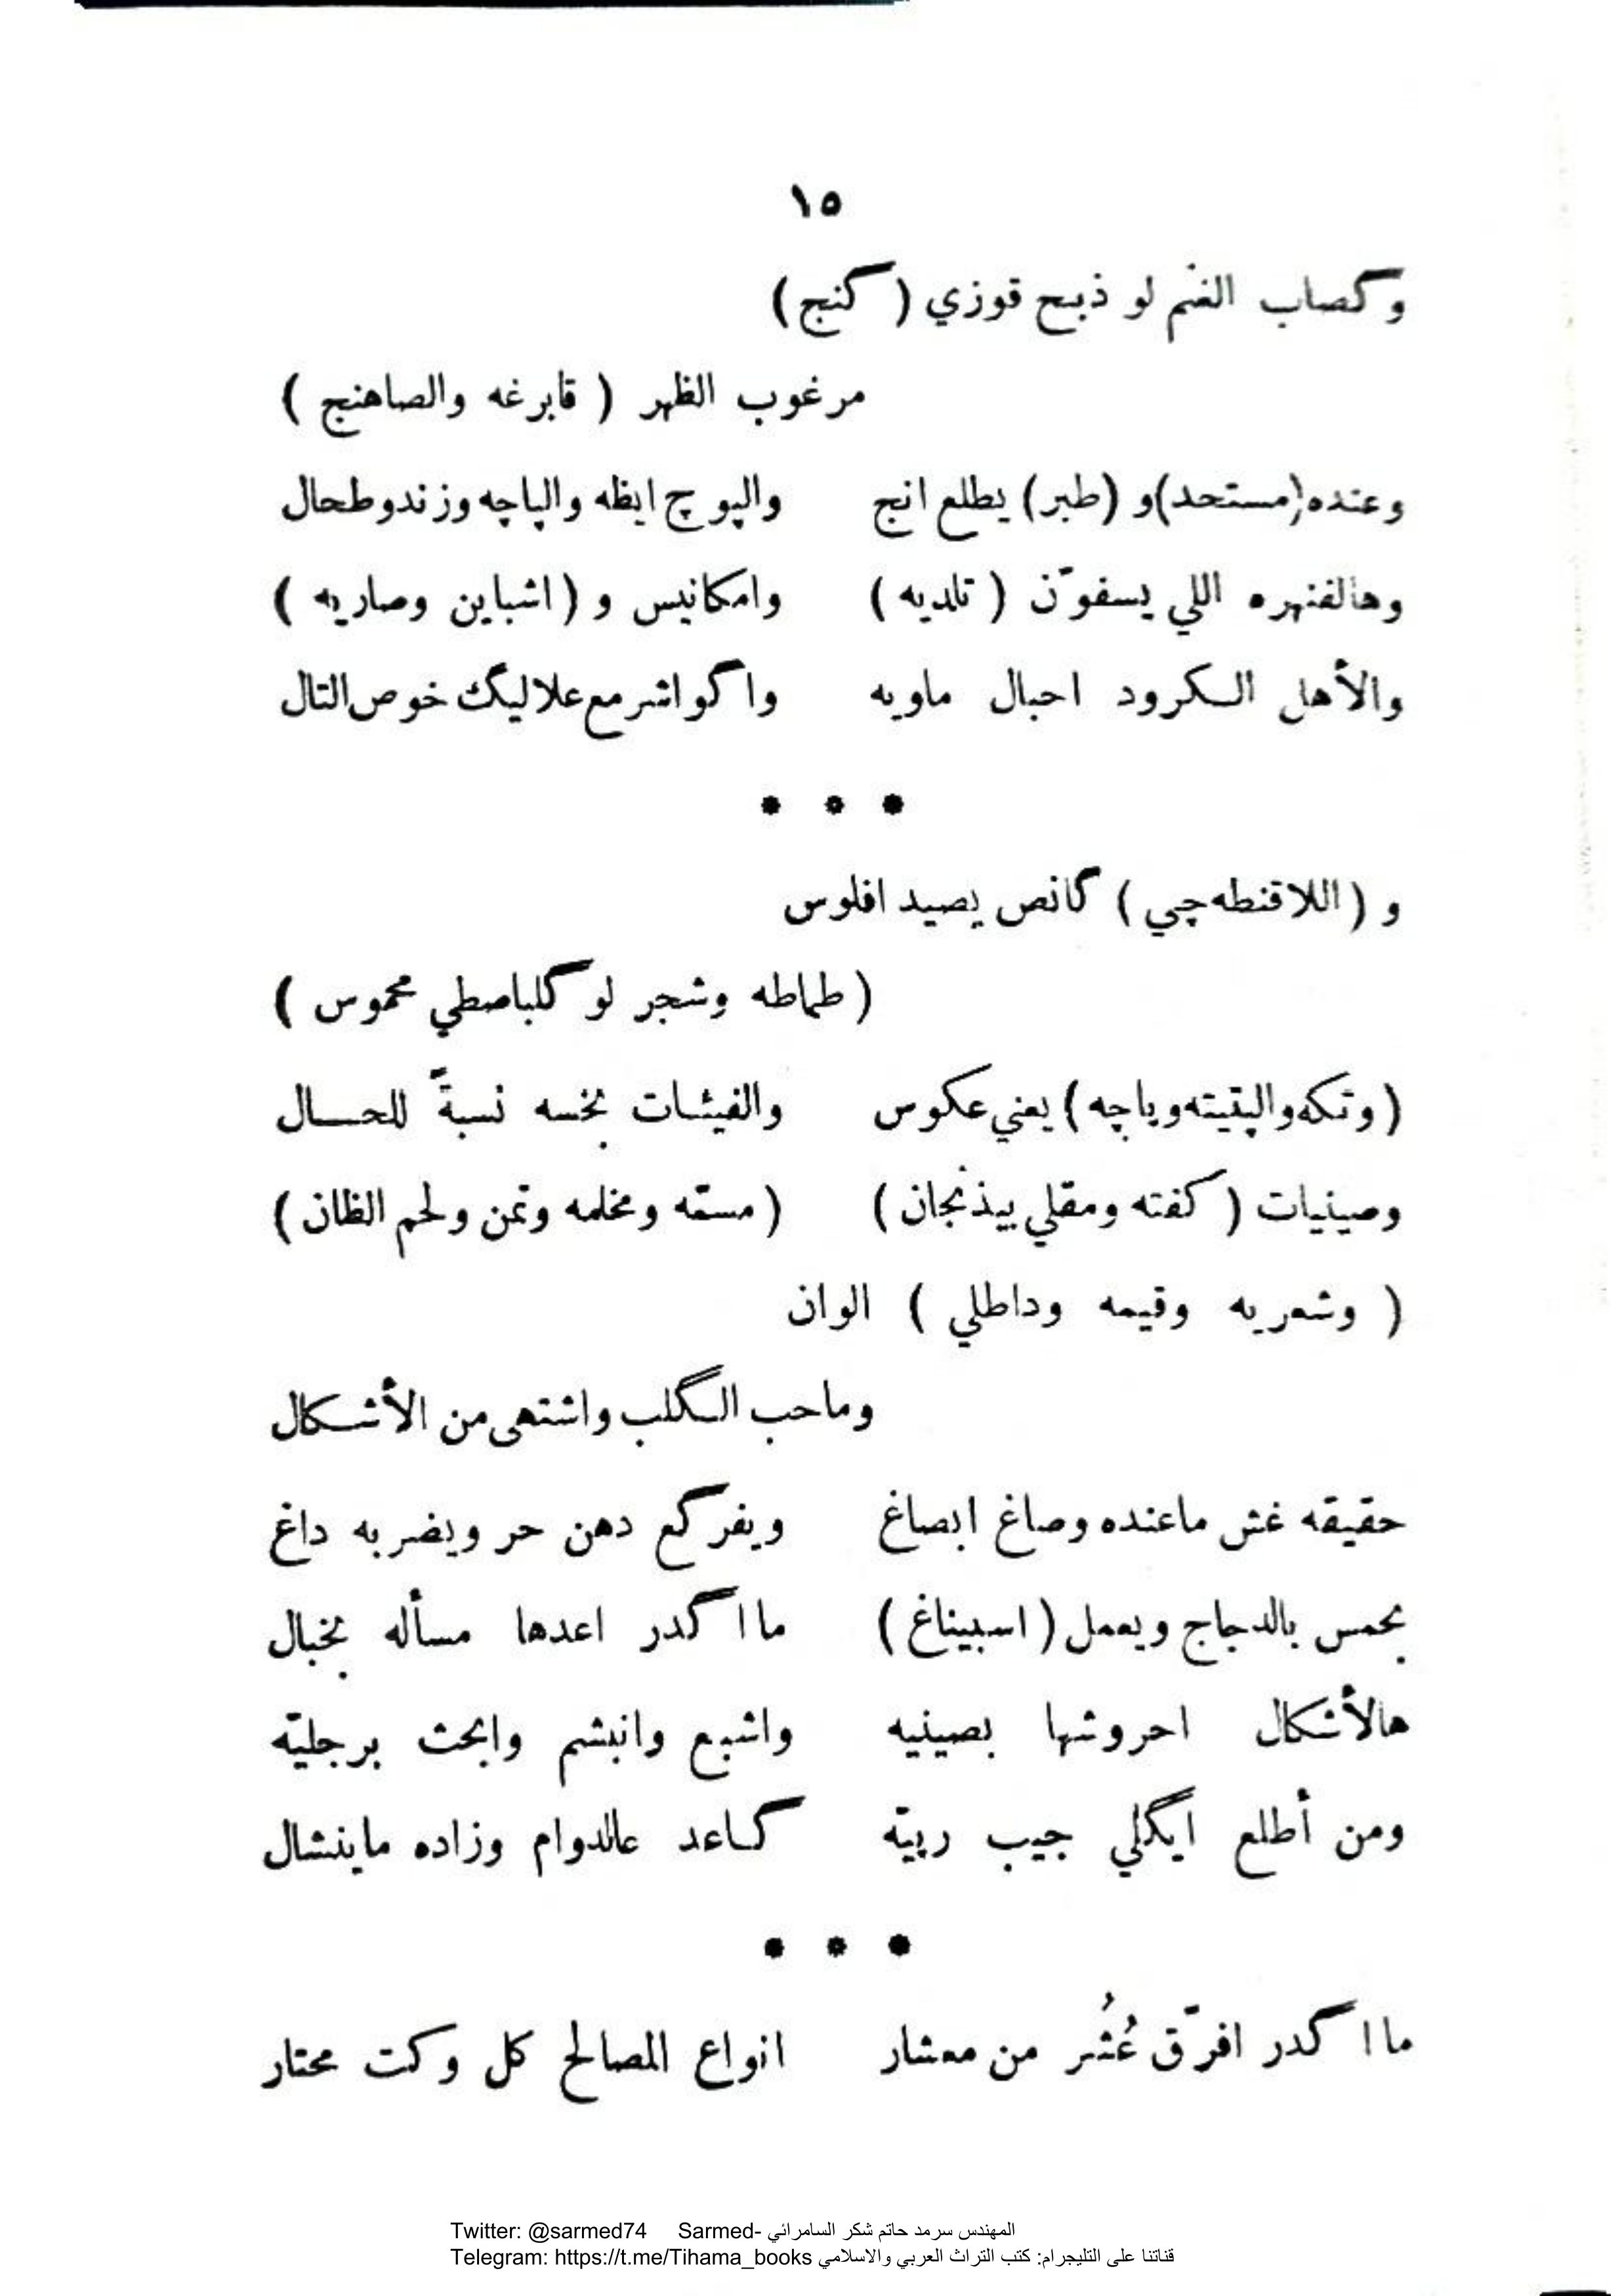 ١٥
وگصاب الغنم لو ذبح قوزي ( گنج )
مرغوب الظهر ( قابرغه والصاهنج )
وعنده (مستحد) و (طبر) يطلع انج والپوچ ايظه والپاچه وزندوطحال
وهالفنهره اللي يسفوّن ( تلديه ) وامكانيس و ( اشباين وصاريه )
والأهل السكرود احبال ماويه واگواشر مع علاليگ خوص التال
* * *
و ( اللاقنطه چي ) گانص يصيد افلوس
( طماطه وشجر لو گلباصطي محموس )
( وتكه والپقيته وپاچه ) يعني عكوس والفيئات بخسه نسبةً للحال
وصينيات ( كفته ومقلي بيذنجان ) ( مسقّه ومخلمه وتمن ولحم الظان )
( وشعريه وقيمه وداطلي ) الوان
وماحب الگلب واشتهى من الأشكال
حقيقه غش ماعنده وصاغ ابصاغ ويفرگع دهن حر ويضربه داغ
يحمس بالدجاج ويعمل ( اسبيناغ ) ما اگدر اعدها مسأله بخبال
هالأشكال احروشها بصينيه واشبع وانبشم وابحث برجليّه
ومن أطلع ايگلي جيب ربيّه گاعد عالدوام وزاده ماينشال
* * *
ما اگدر افرّق عُشُر من معشار انواع المصالح كل وكت محتار
Twitter: @sarmed74 Sarmed- المهندس سرمد حاتم شكر السامرائي
Telegram: https://t.me/Tihama_books قناتنا على التليجرام: كتب التراث العربي والاسلامي